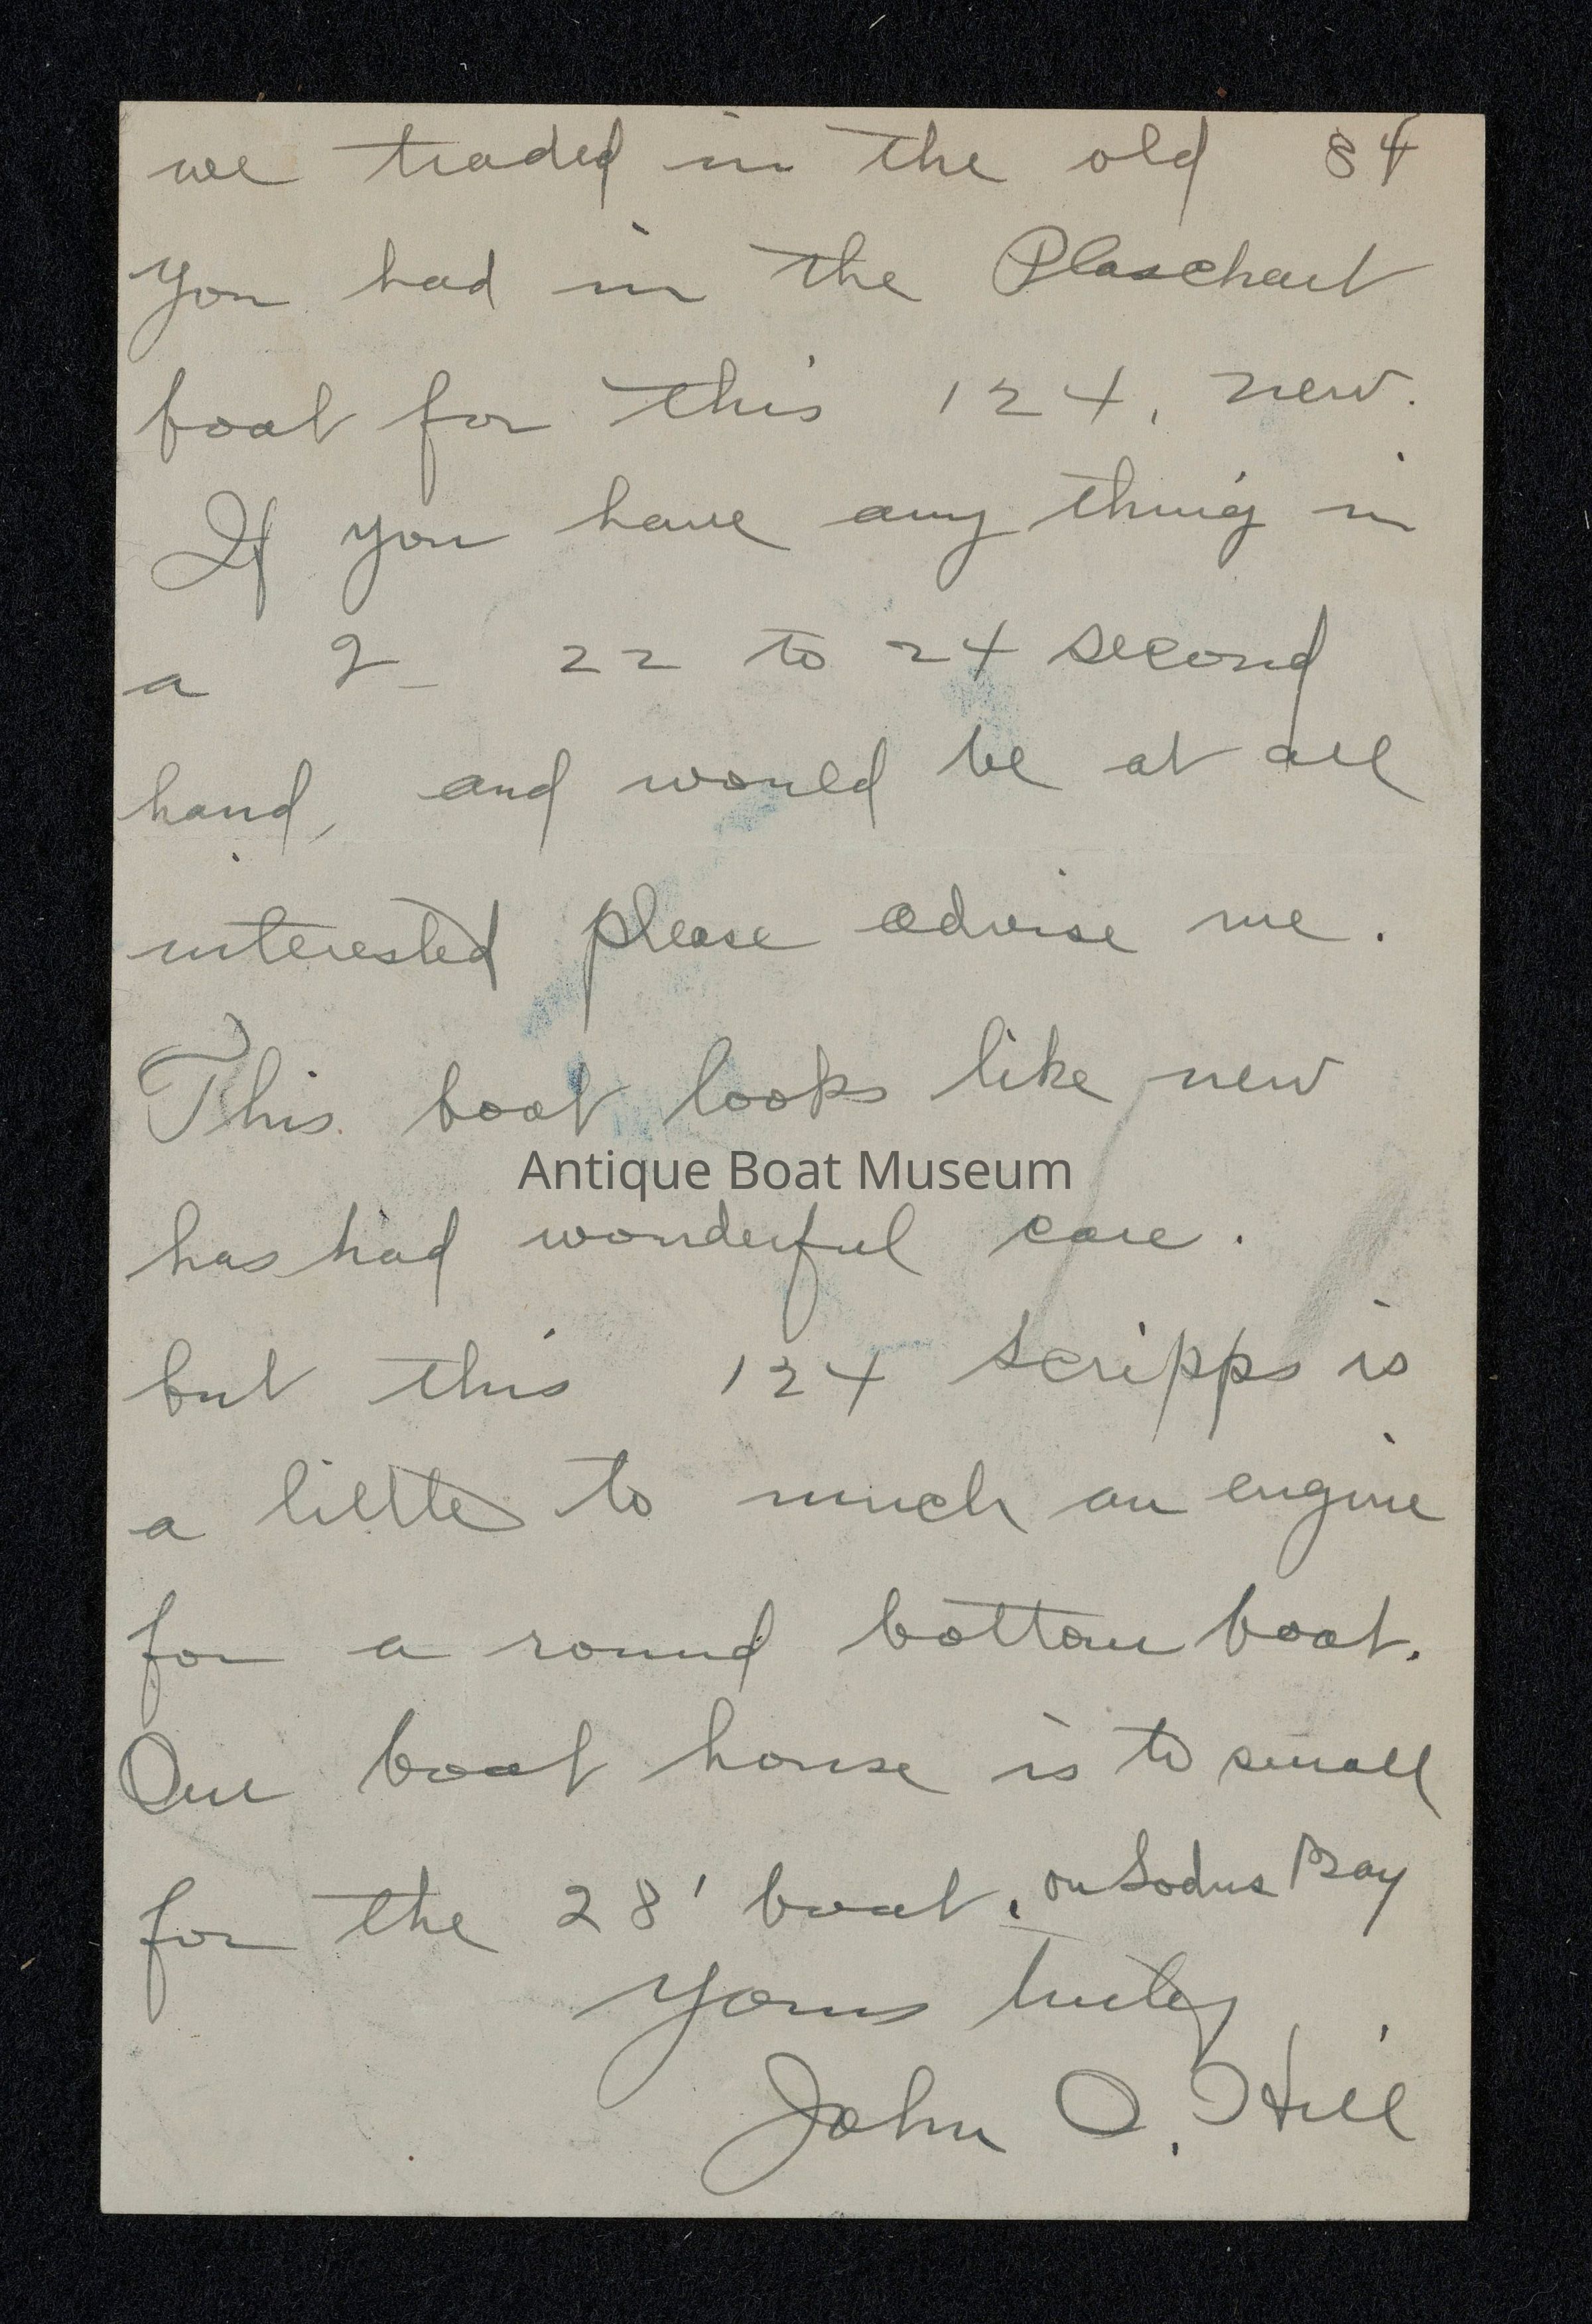 we traded in the old 84
you had in the Plaschart
boat for this 124, new.
If you have any thing in
a 2_ 22 to 24 second
hand, and would be at all
interested please advise me.
This boat looks like new
Antique Boat Museum
has had wonderful care.
but this 124 Scripps is
a little to much an engine
for a round bottom boat.
Our boat house is to small
for the 28' boat. on Sodus Bay
Yours truly
John O. Hill